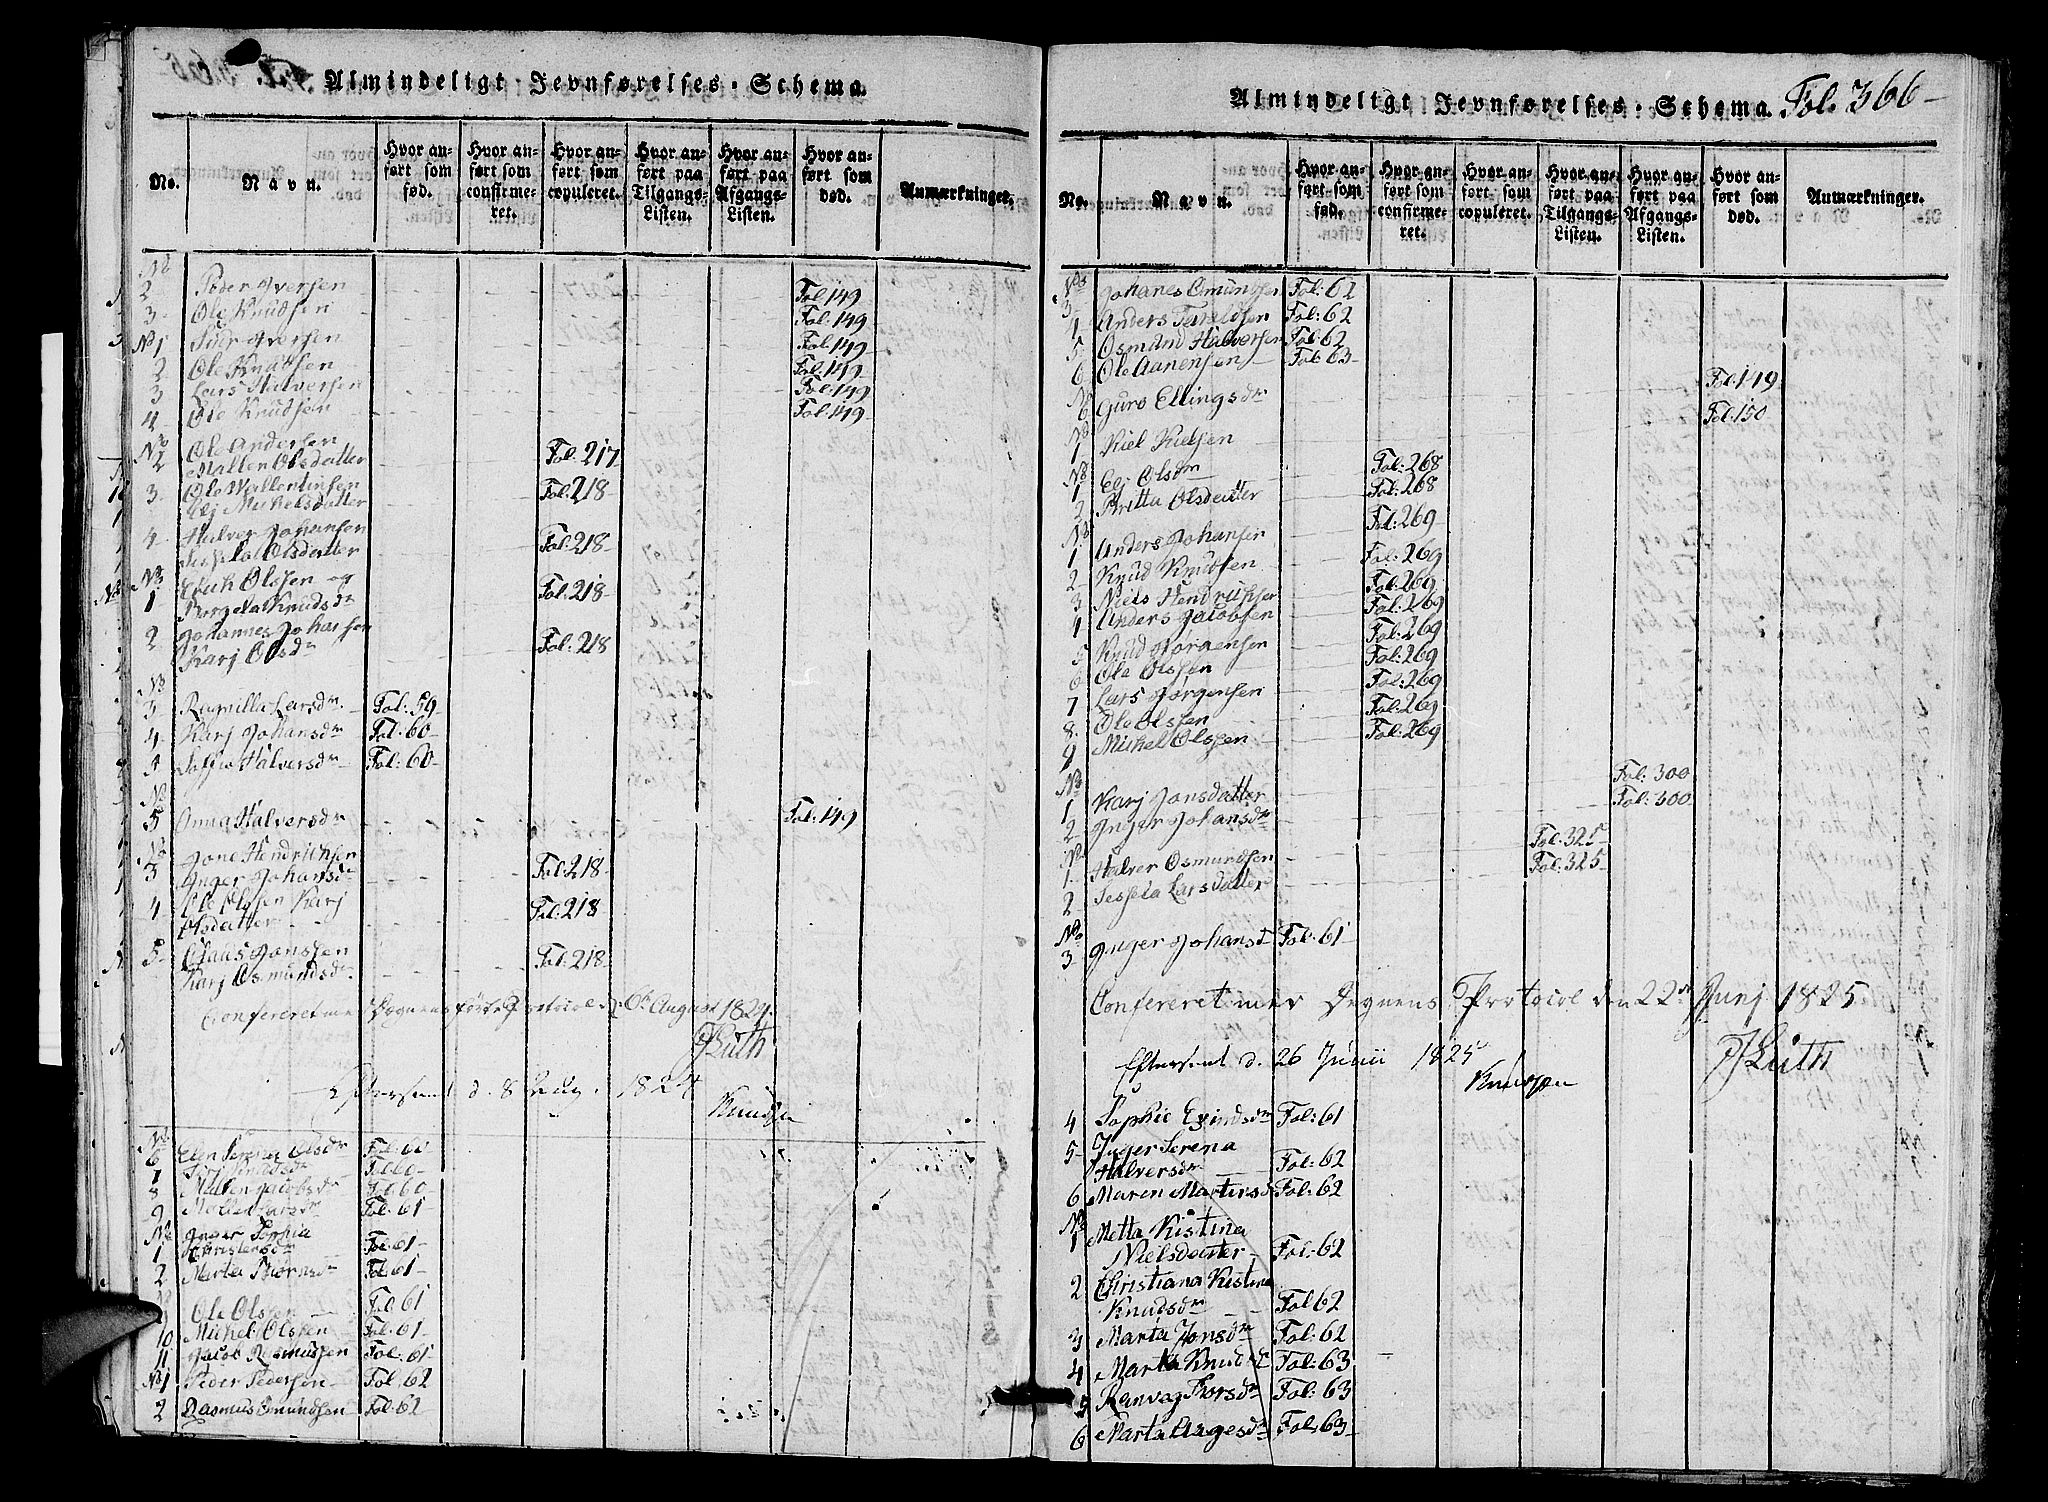 Almindeligt Jevnførelses-Schema.
No. Navn. Hvor anført som fød. Hvor anført som confirmeret. Hvor anført som copuleret. Hvor anført paa Tilgangs-Listen. Hvor anført paa Afgangs-Listen. Hvor anført som død. Anmærkninger.
No
2 Peder Iversen Fol 149
3 Ole Knudsen Fol: 149
No 1 Peder Iversen Fol 149
2 Ole Knudsen Fol: 149
3 Lars Halversen Fol: 149
4 Ole Knudsen Fol: 149
No Ole Andersen
2 Mallen Olsdatter Fol: 217
3 Ole Wallentinsen Fol: 218
Elj Michelsdatter
4 Halver Johansen Fol: 218
Sessela Olsdatter
No Erich Olssen og
1 Borgela Knudsdr Fol: 218
2 Johannes Johansen Fol: 218
Karj Olsdr
No
3 Ragnilla Larsdr. Fol: 59
4 Karj Johansdr Fol: 60
4 Halversdr Fol: 60
No
5 Anna Halversdr Fol: 149
No Jone Hendrichsen
3 Inger Johansdr Fol: 218
4 Ole Olssen Karj Fol: 218
Olsdatter
5 Claus Jonssen Fol: 218
Karj Osmundsdr
Confereret med Degnens førte Protocol d. 6te August 1824.
J Lüth
Efterseet d. 8 Aug. 1824
Knudsen
No
6 Elen Serina Olsdr Fol: 60
7 Fol 60
8 Mallen Jacobsdr Fol: 60
9 Larsdr Fol: 61
No Inger Sophia
1 Christensdr Fol: 61
2 Marta Thornsdr Fol: 61
Ole Olssen Fol: 61
10 Michel Olssen Fol: 61
11 Jacob Rasmussen Fol: 61
No 1 Peder Pedersen Fol: 62
2 Rasmus Omundsen Fol: 62
Almindeligt Jevnførelses-Schema. Fol. 366
No. Navn. Hvor anført som fød. Hvor anført som confirmeret. Hvor anført som copuleret. Hvor anført paa Tilgangs-Listen. Hvor anført paa Afgangs-Listen. Hvor anført som død. Anmærkninger.
No
3 Johanes Omundsen Fol: 62
4 Anders Fol: 62
5 Osmund Halversen Fol: 62
6 Ole Aanensen Fol: 63
No
6 Guro Ellingsdr Fol: 149
No
1 Kiel Kielsen Fol: 150
No
1 Elj Olsdr Fol: 268
2 Britta Olsdatter Fol: 268
No
1 Anders Johansen Fol: 269
2 Knud Knudsen Fol: 269
3 Niels Hendrichsen Fol: 269
4 Anders Jacobsen Fol: 269
5 Knud Jörgensen Fol: 269
6 Ole Olssen Fol: 269
7 Lars Jørgensen Fol: 269
8 Ole Olssen Fol: 269
9 Michel Olssen Fol: 269
No
1 Karj Jonsdatter Fol: 300
2 Inger Johansdr Fol: 300
No
1 Halver Osmundsen Fol: 325
2 Sessela Larsdatter Fol: 325
No
3 Inger Johansd Fol: 61
Confereret med Degnens Protocol den 22de Junj 1825
J Lüth
Efterseet d. 26 Junii 1825
Knudsen
4 Sophie Ejvindsdr Fol: 61
5 Inger Serena
Halversdr Fol: 62
6 Maren Martinsd Fol: 62
No
1 Metta Kistina
Nielsdatter Fol: 62
2 Christiana Kistina
Knudsdr Fol 62
3 Marta Jonsdr Fol: 62
4 Marta Knudsdr Fol: 63
5 Ranvag Thorsdr Fol: 63
6 Marta Aagesdr Fol: 63